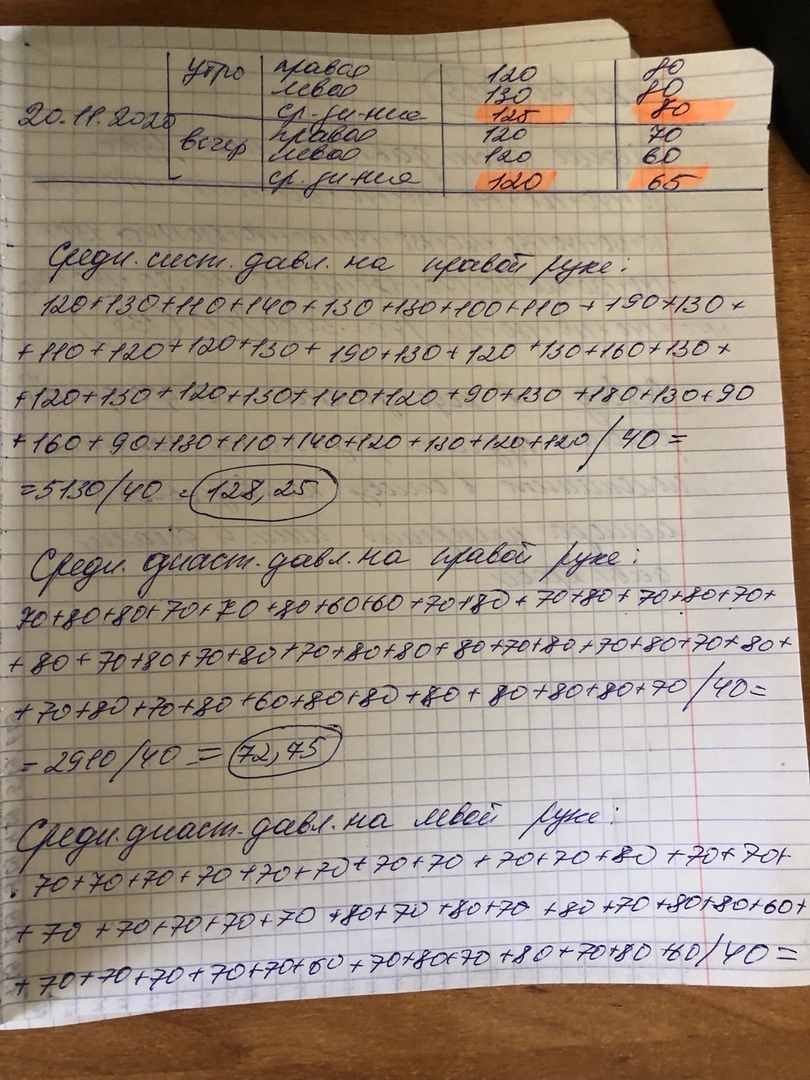 утро правое 120 80
левое 130 80
20.11.2020 ср. зн-ние 125 80
вечер правое 120 70
левое 120 60
ср. зн-ние 120 65
Средн. сист. давл. на правой руке:
120+130+110+140+130+130+100+110+190+130+
+110+120+120+130+190+130+120+130+160+130+
+120+130+120+130+140+120+90+130+180+130+90
+160+90+130+110+140+120+130+120+120/40=
=5130/40=128,25
Средн. диаст. давл. на правой руке:
70+80+80+70+70+80+60+60+70+80+70+80+70+80+70+
+80+70+80+70+80+70+80+80+80+70+80+70+80+70+80+
+70+80+70+80+60+80+80+80+80+80+80+70/40=
=2910/40=72,75
Средн. диаст. давл. на левой руке:
70+70+70+70+70+70+70+70+70+70+80+70+70+
+70+70+70+70+70+80+70+80+70+80+70+80+80+60+
+70+70+70+70+70+60+70+80+70+80+70+80+60/40=